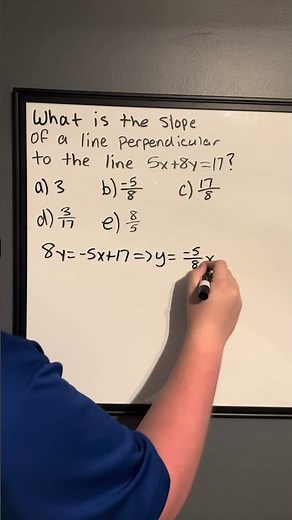 What is the slope
of a line perpendicular
to the line 5x+8y=17?
a) 3 b) -5/8 c) 17/8
d) 3/17 e) 8/5
8y=-5x+17=>y=-5/8x